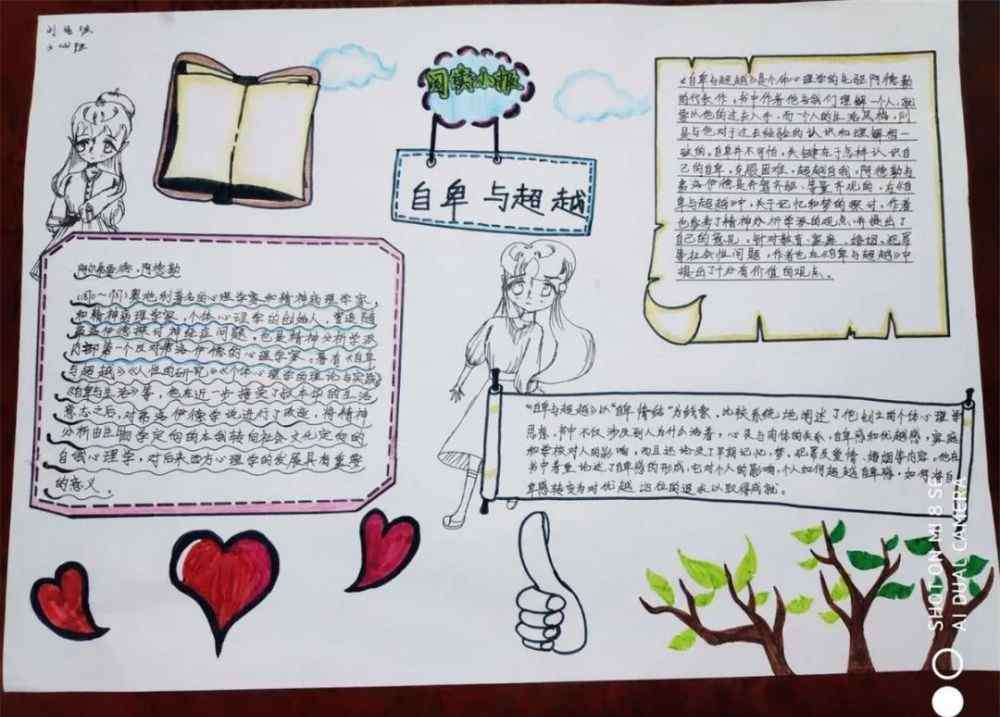 阅读小报
自卑与超越
阿尔弗雷德·阿德勒
奥地利著名的心理学家和精神病理学家，
和精神病理学家，个体心理学的创始人，曾追随
弗洛伊德探讨神经症问题，也是精神分析学派
内部第一个反对弗洛伊德的心理学家。著有《自卑
与超越》《人性的研究》《个体心理学的理论与实践》
《自卑与生活》等，他在进一步接受了叔本华的生活
意志之后，对弗洛伊德学说进行了改造，将精神
分析由生物学定向的本我转向社会文化定向的
自我心理学，对后来西方心理学的发展具有重要
的意义。
《自卑与超越》是个体心理学的先驱阿德勒
的代表作，书中作者告诉我们理解一个人，就
要从他的过去入手，而一个人的生活风格，则
是与他对于过去经验的认识和理解相一
致的。自卑并不可怕，关键在于怎样认识自
己的自卑，克服困难，超越自我。阿德勒与
弗洛伊德是齐名齐驱、等量齐观的，在《自
卑与超越》中，关于记忆和梦的探讨，作者
也参考了精神分析学派的观点，并提出了
自己的意见。针对教育、家庭、婚姻、犯罪
等社会性问题，作者也在《自卑与超越》中
提出了十分有价值的观点。
《自卑与超越》以“自卑情结”为线索，比较系统地阐述了他创立的个体心理学
思想。书中不仅涉及到人为什么活着，心灵与肉体的关系，自卑感和优越感，家庭
和学校对人的影响，而且还论及了早期记忆、梦、犯罪及爱情、婚姻等内容。他在
书中着重论述了自卑感的形成，它对个人的影响，个人如何超越自卑感，如何将自
卑感转变为对优越地位的追求以取得成就。
SHOT ON MI 8 SE
AI DUAL CAMERA